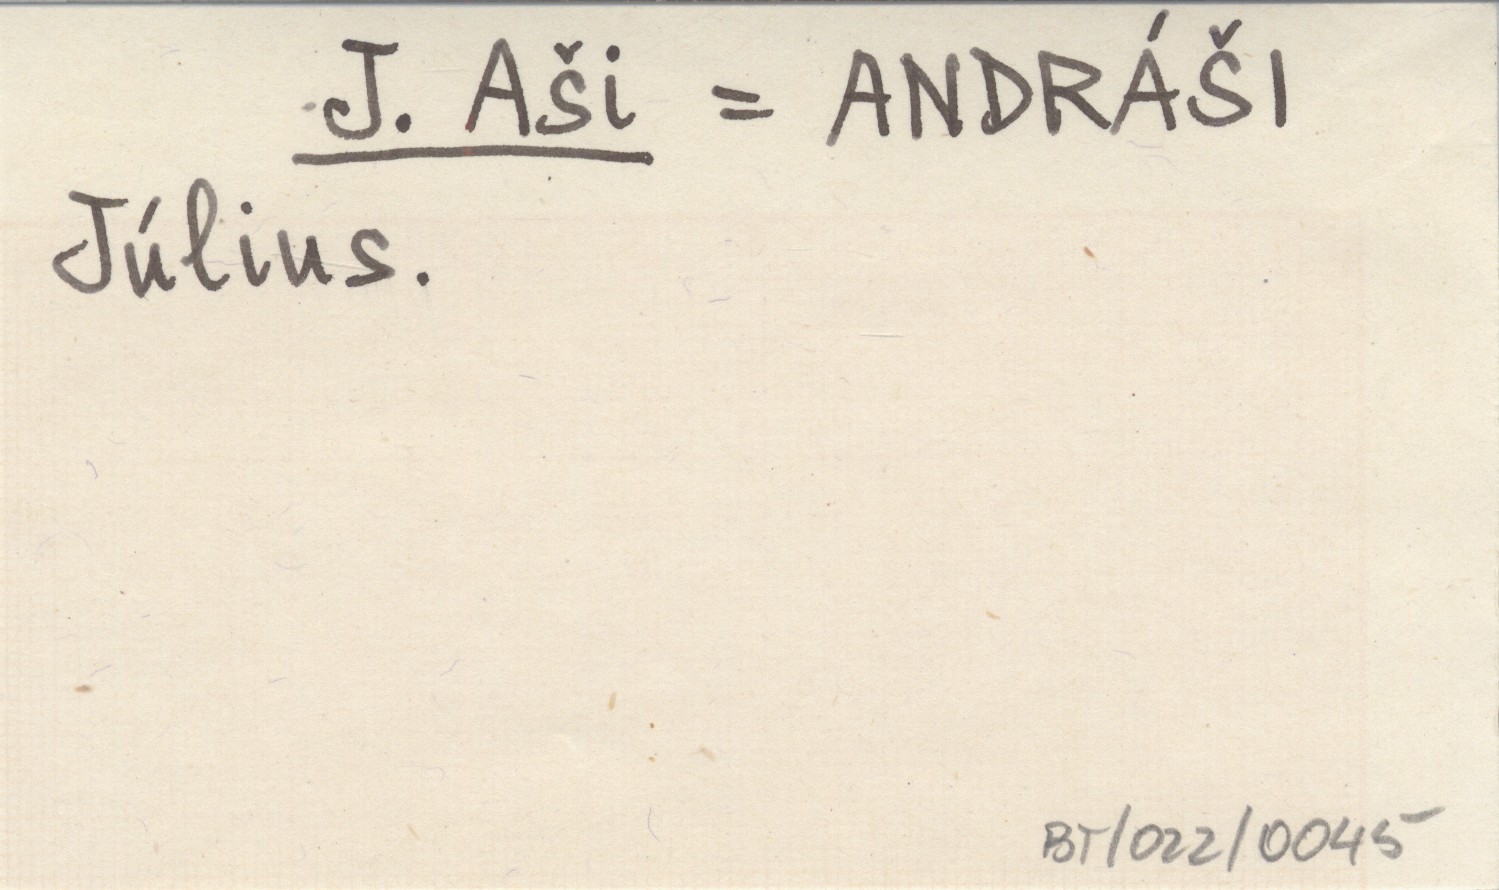 J. Aši = ANDRÁŠI
Július.
BT/022/0045